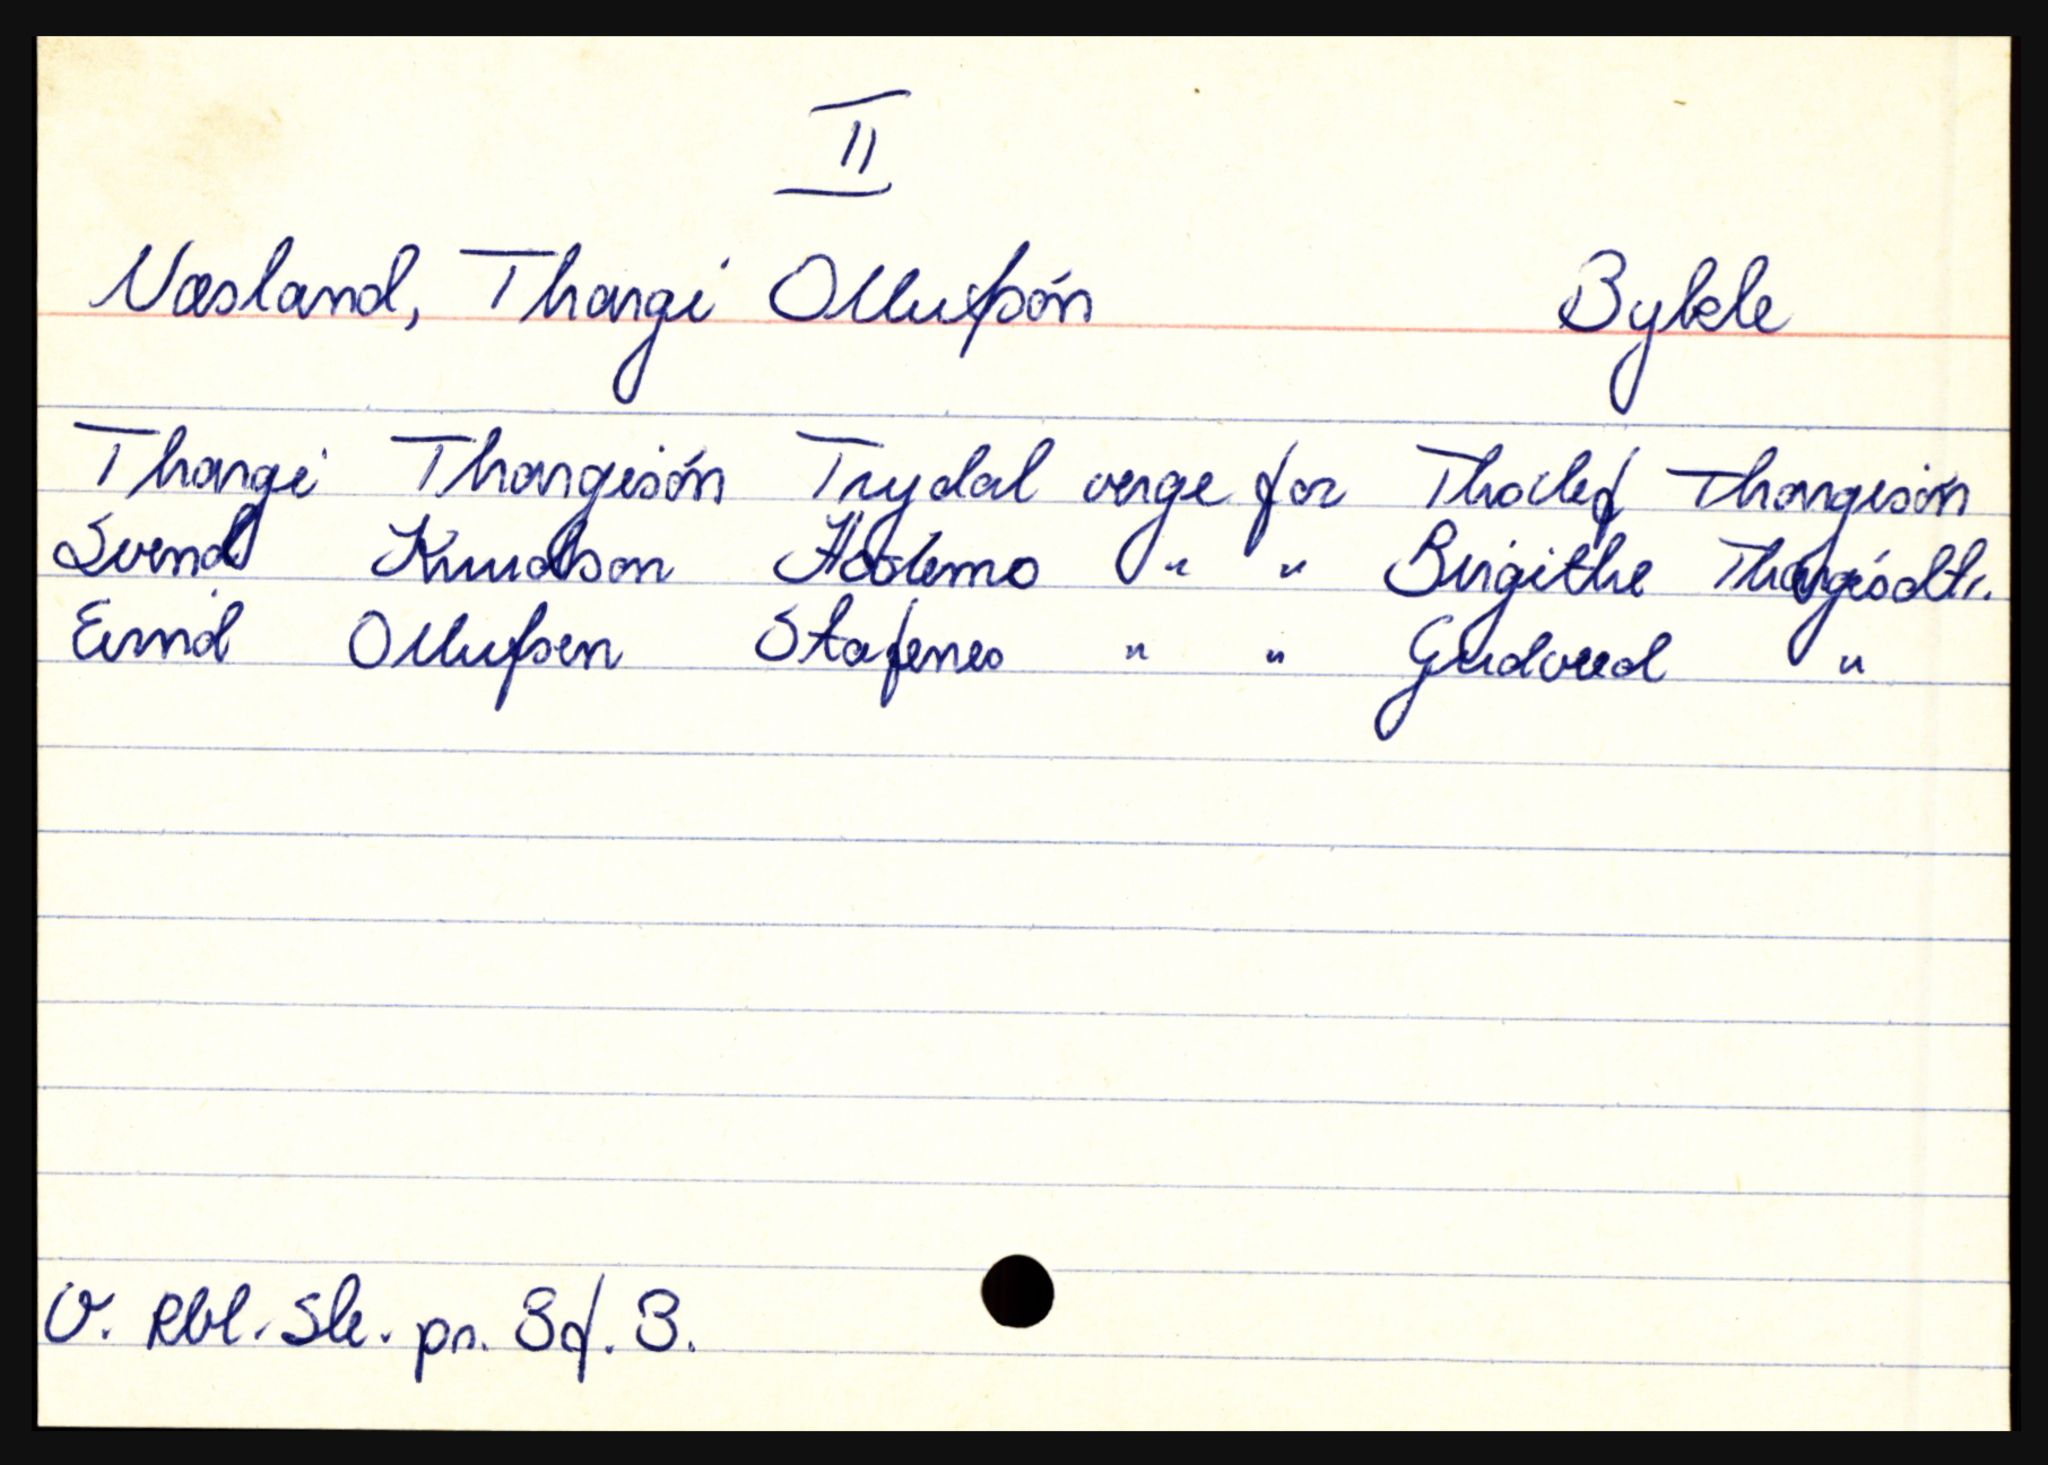 II
Næsland, Thargi Ollufsón Bykle
Thargi Thargisón Trydal verge for Thorlef Thargisón
Svend Knudson Hodemo " " Birgithe Thargisdtr.
Eivind Ollufsen Stafenes " " Gudved "
V. Rbl. Sk. pr. 3 f. 3.